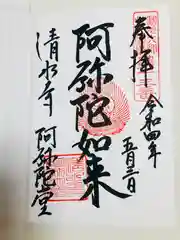 奉拝
令和四年
五月三日
阿弥陀如来
清水寺
阿弥陀堂